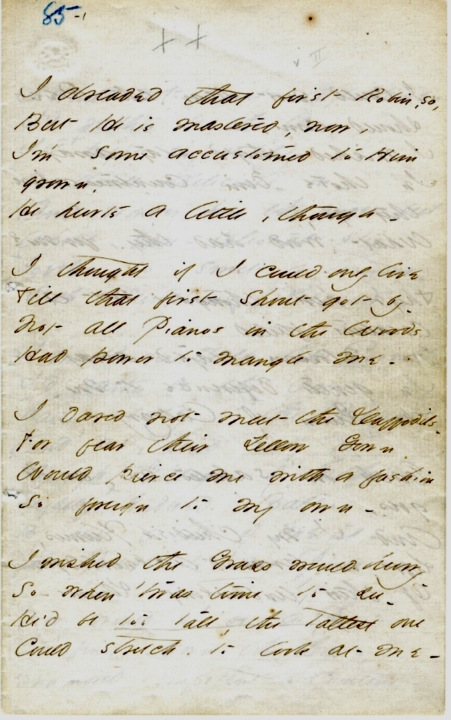 85-1
+ +
I dreaded that first Robin, so,
But He is mastered, now,
I'm some accustomed to Him
grown,
He hurts a little, though -
I thought if I could only live
Till that first Shout got by -
Not all Pianos in the Woods
Had power to mangle me -
I dared not meet the Daffodils -
For fear their Yellow Gown
Would pierce me with a fashion
So foreign to my own -
I wished the Grass would hurry
So when 'twas time to see -
He'd be too tall, the tallest one
Could stretch to look at me -